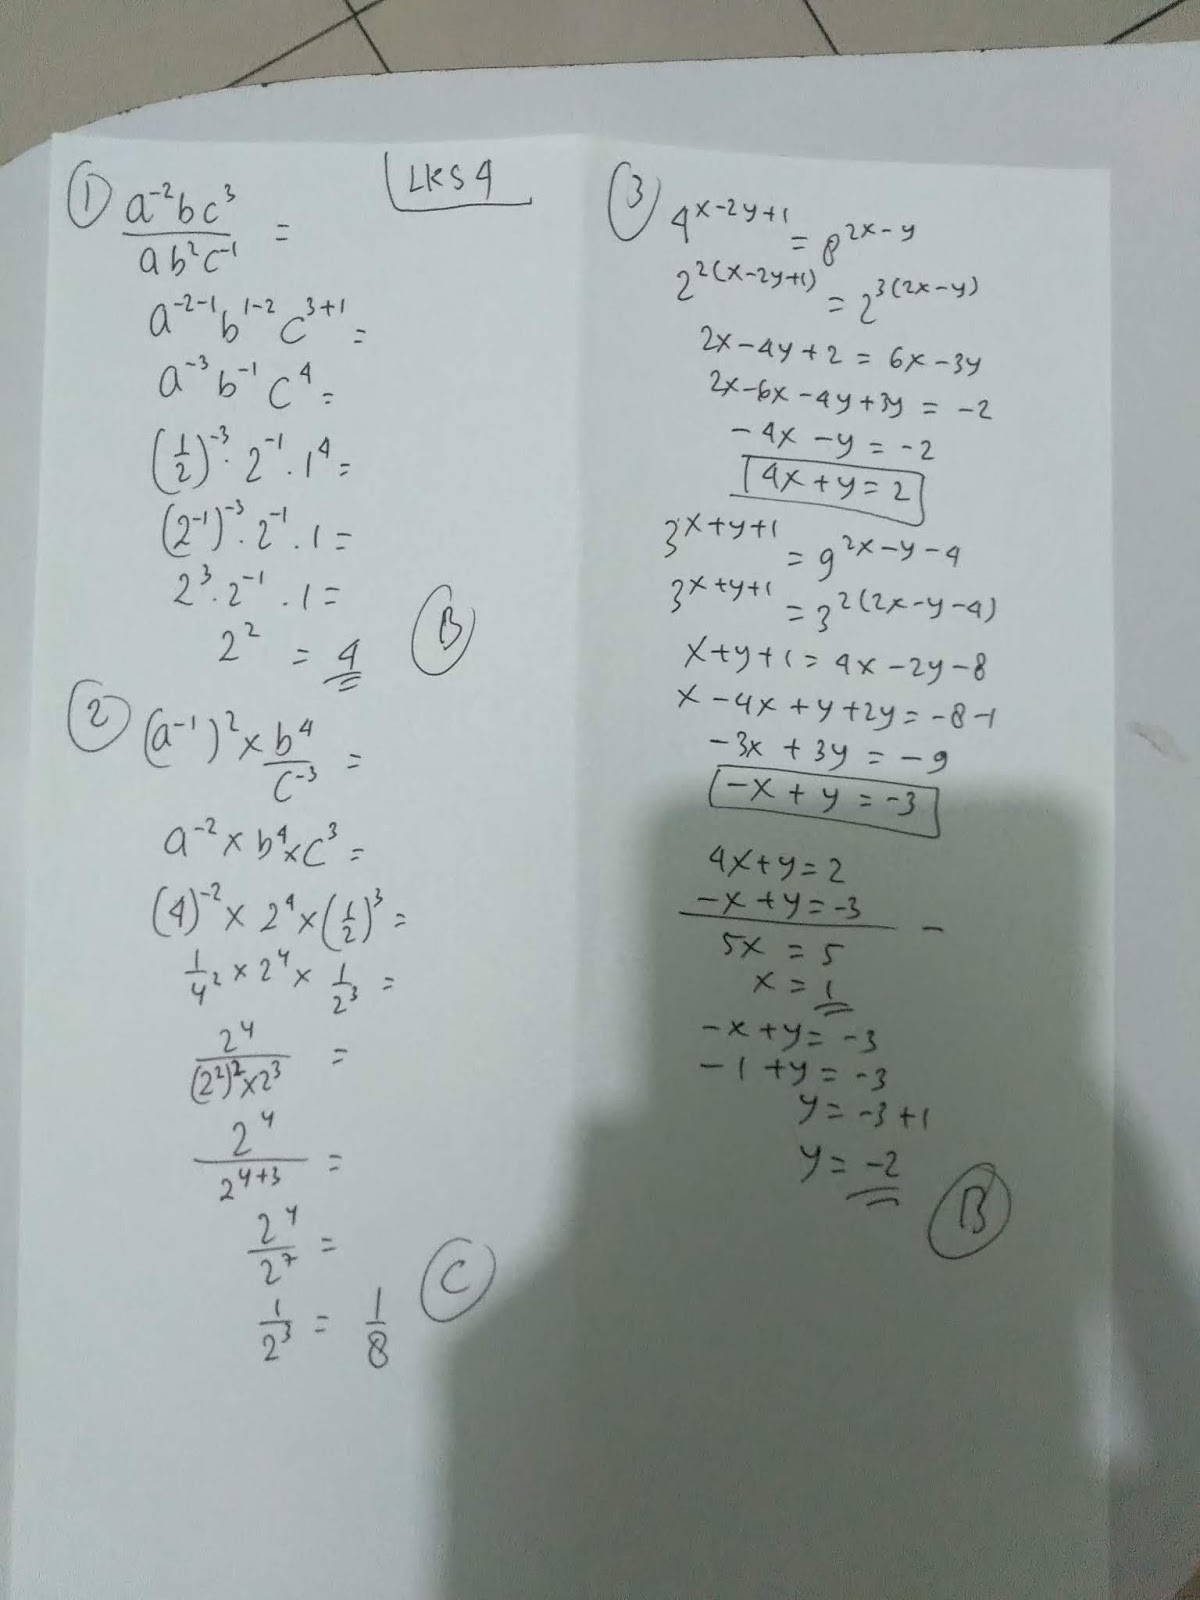 LKS 4
① a⁻²bc³ / ab²c⁻¹ =
a⁻²⁻¹ b¹⁻² c³⁺¹ =
a⁻³ b⁻¹ c⁴ =
(1/2)⁻³ · 2⁻¹ · 1⁴ =
(2⁻¹)⁻³ · 2⁻¹ · 1 =
2³ · 2⁻¹ · 1 =
2² = 4
B
② (a⁻¹)² × b⁴/c⁻³ =
a⁻² × b⁴ × c³ =
(4)⁻² × 2⁴ × (1/2)³ =
1/4² × 2⁴ × 1/2³ =
2⁴ / (2²)² × 2³ =
2⁴ / 2⁴⁺³ =
2⁴ / 2⁷ =
1/2³ = 1/8
C
③ 4^(x-2y+1) = 8^(2x-y)
2^(2(x-2y+1)) = 2^(3(2x-y))
2x - 4y + 2 = 6x - 3y
2x - 6x - 4y + 3y = -2
-4x - y = -2
4x + y = 2
3^(x+y+1) = 9^(2x-y-4)
3^(x+y+1) = 3^(2(2x-y-4))
x + y + 1 = 4x - 2y - 8
x - 4x + y + 2y = -8 - 1
-3x + 3y = -9
-x + y = -3
4x + y = 2
-x + y = -3 -
5x = 5
x = 1
-x + y = -3
-1 + y = -3
y = -3 + 1
y = -2
B